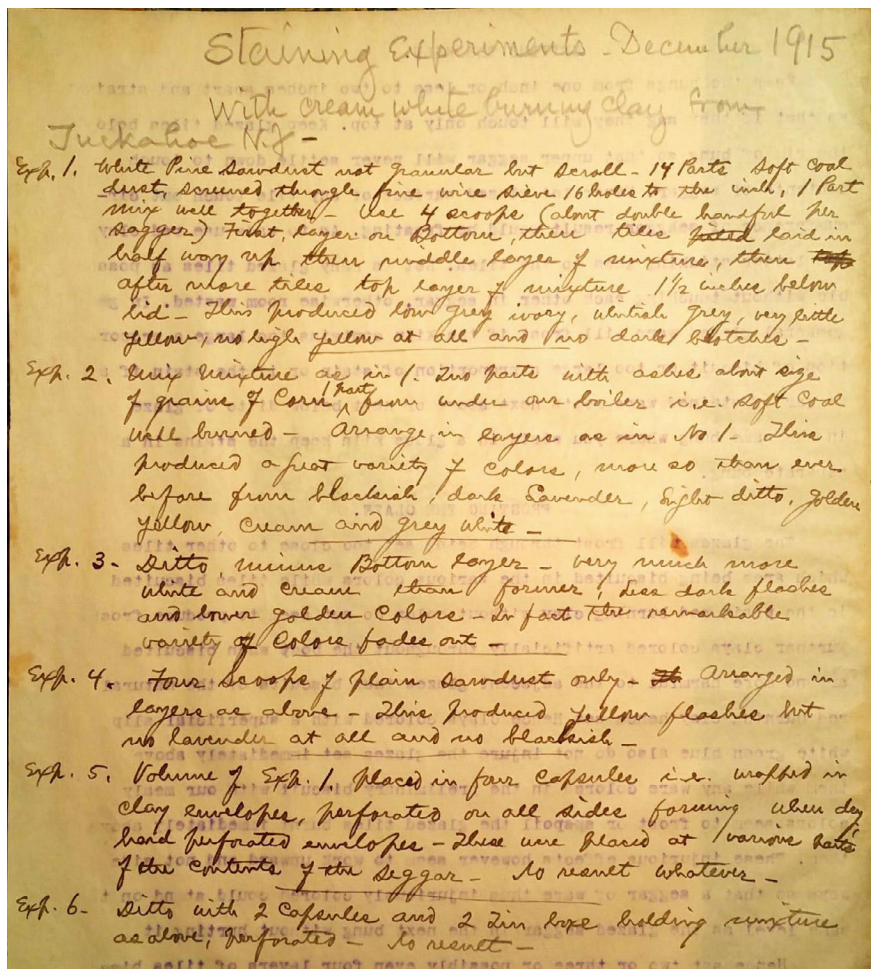 Staining Experiments - December 1915
With cream white burning clay from
Tuckahoe N.J -
Exp. 1. White Pine Sawdust not granular but scroll - 14 Parts Soft Coal
dust, screened through fine wire sieve 16 holes to the inch, 1 Part
mix well together - Use 4 scoops (about double handful per
sagger) First, layer on Bottom, then tiles laid in
half way up then middle layer of mixture, then
after more tiles top layer of mixture 1 1/2 inches below
lid - This produced low grey ivory, whitish grey, very little
yellow, no high yellow at all and no dark blotches -
Exp. 2. Mix Mixture as in 1. Two parts with ashes about size
of grains of Corn 1 Part from under our boiler i.e. soft coal
well burned - Arrange in layers as in No 1 - This
produced a great variety of colors, more so than ever
before from blackish, dark Lavender, light ditto, golden
yellow, cream and grey white -
Exp. 3 - Ditto, minus Bottom layer - very much more
white and cream than former, Less dark flashes
and lower golden colors - In fact the remarkable
variety of colors fades out -
Exp. 4. Four scoops of plain sawdust only - Arranged in
layers as above - This produced yellow flashes but
no lavender at all and no blackish -
Exp. 5. Volume of Exp. 1. placed in four capsules i.e. wrapped in
clay envelopes, perforated on all sides forming when dry
hard perforated envelopes - These were placed at various parts
of the contents of the seggar - No result whatever -
Exp. 6 - Ditto with 2 Capsules and 2 Tin boxe holding mixture
as above, perforated - No result -